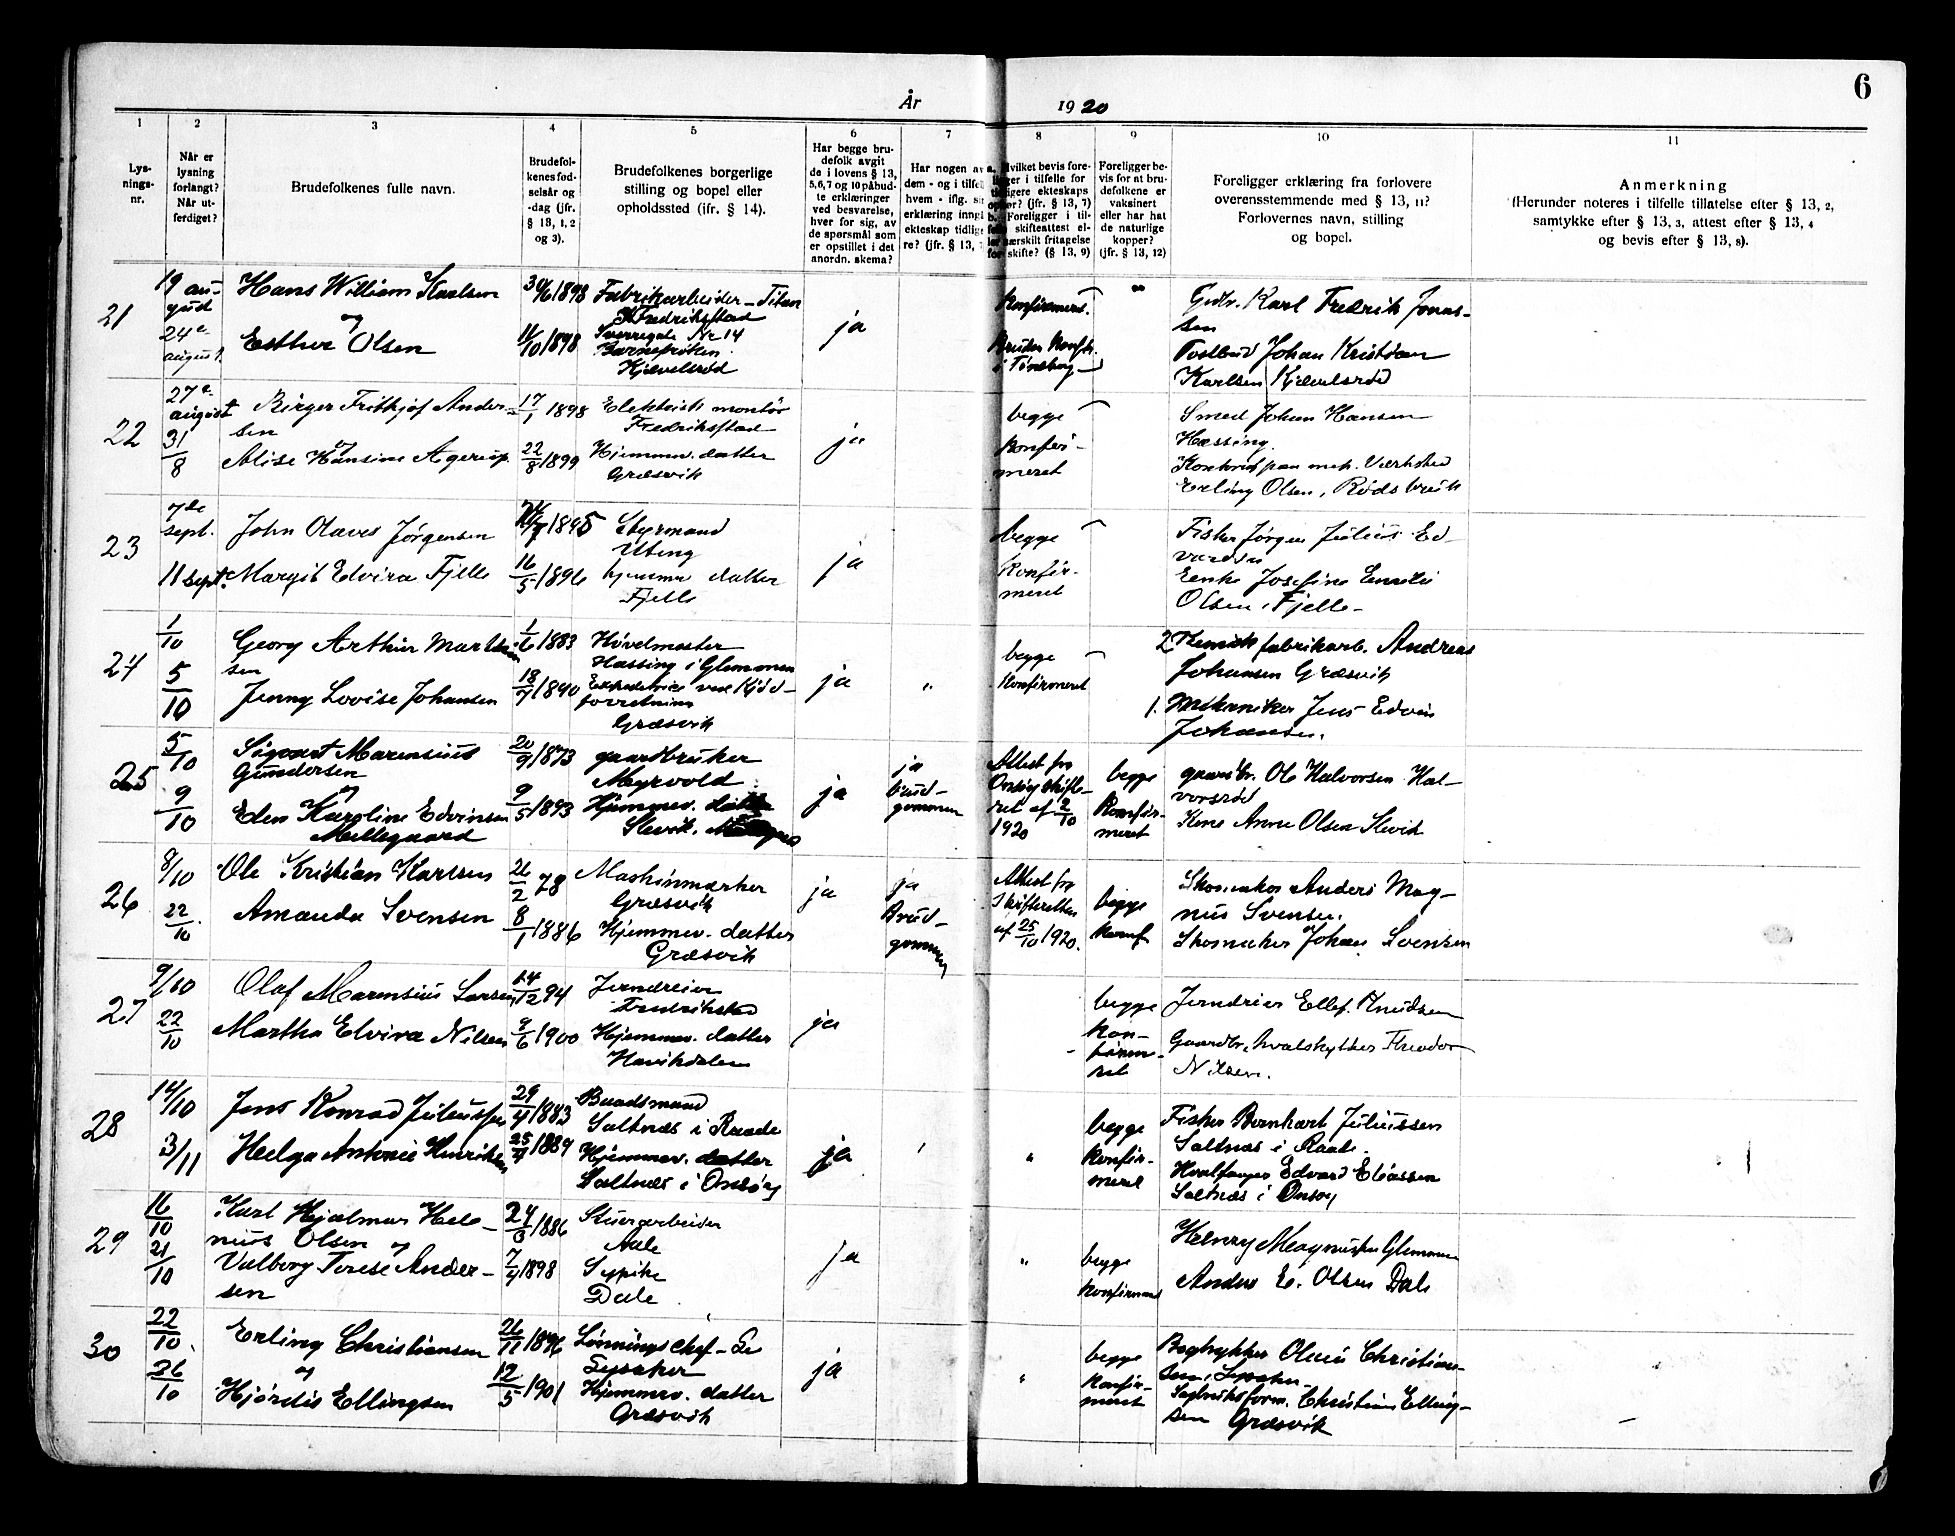 6
År 1920
1 2 3 4 5 6 7 8 9 10 11
Lys-
nings-
nr.
Når er
lysning
forlangt?
Når ut-
ferdiget?
Brudefolkenes fulle navn.
Brudefol-
kenes fød-
selsår og
-dag (jfr.
§ 13, 1, 2
og 3).
Brudefolkenes borgerlige
stilling og bopel eller
opholdssted (ifr. § 14).
Har begge bru-
defolk avgit
de i lovens § 13,
5, 6, 7 og 10 påbud-
te erklæringer
ved besvarelse,
hver for sig, av
de spørsmål som
er opstillet i det
anordn. skema?
Har nogen av
dem - og i tilfel
hvem - iflg.
erklæring inngå
ekteskap tidlige
re? (jfr. § 13,
Hvilket bevis fore-
ligger i tilfelle for
tidligere ekteskaps
ophør? (jfr. § 13, 7)
b. Foreligger i til-
skifteattest el-
særskilt fritagelse
for skifte? (§ 13, 9)
Foreligger be-
vis for at bru-
defolkene er
vaksinert
eller har hat
de naturlige
kopper?
(jfr. § 13, 12)
Foreligger erklæring fra forlovere
overensstemmende med § 13, 11?
Forlovernes navn, stilling
og bopel.
Anmerkning
(Herunder noteres i tilfelle tillatelse efter § 13, 2,
samtykke efter § 13, 3, attest efter § 13, 4
og bevis efter § 13, 8).
21
19 au-
gust
24de
august.
Hans William Karlsen
og
Esther Olsen
30/6 1898
11/10 1898
Fabrikarbeider - Titan
Fredrikstad
Sverregate Nr 14
Barnefrøken
Kjævelsrød
ja
Konfirmert.
Bruden konf.
i Tønsberg
"
Gvbr. Karl Fredrik Jonas-
sen
Postbud Johan Kristian
Karlsen Kjævelsrød
22
27de
august
31/8
Birger Frithjof Ander-
sen
og
Alise Hansine Agerup
17/1 1898
22/8 1899
Elektrisk montør
Fredrikstad
Hjemmev. datter
Græsvik
ja
begge
konfir-
meret
Smed Johan Hansen
Hæssing.
mek. Værksted
Erling Olsen, Rødsbruk
23
7de
sept.
11 sept.
John Olaves Jørgensen
Margit Elvira Fjelle
1895
16/5 1896
Styrmand
Uteng
hjemmv datter
Fjelle
ja
begge
konfir-
meret
Fisker Jørgen Julius Ed-
vardsen
Enke Josefine Emilie
Olsen, Fjelle-
24
1/10
5/10
Georg Arthur Martin-
sen
Jenny Lovise Johansen
1/6 1883
18/7 1890
Høvelmester
Hassing i Glemmen
Expeditrice ved Kjød-
forretning
Græsvik
ja
"
begge
konfirmeret
2. Kemisk fabrikarb. Andreas
Johansen Græsvik
1. Mekaniker Jens Edvin
Johansen.
25
5/10
9/10
Sigvart Marensius
Gundersen
og
Eden Karoline Edvinsen
Mellegaard
20/9 1873
9/5 1893
gaardbruker
Møyrvold
Hjemmev. datter
Slevik.
ja
ja
brud-
gommen
Attest fra
Onsøy skifte-
ret af 2/10
1920
begge
Konfir-
meret
gaardbr. Ole Halvorsen Hal-
vorsrød
Kone Anne Olsen Slevik
26
8/10
22/10.
Ole Kristian Karlsen
Amanda Svensen
26/2 78
8/1 1886
Maskinmærker
Græsvik
Hjemmev. datter
Græsvik
ja
ja
Brud-
gommen
Attest fra
Skifteretten
af 25/10 1920.
begge
konf
Skomaker Anders Mag-
nus Svensen.
og
Skomaker Johan Svensen
27
9/10
22/10
Olaf Marensius Larsen
Martha Elvira Nilsen
14/12 94
9/6 1900
Jerndreier
Fredrikstad
Hjemmev. datter
Haukedalen
ja
begge
kon-
firme-
ret
Jerndreier Ellef Knudsen
Gaardbr. hvalskytter Theodor
Nilsen.
28
14/10
3/11
Jens Konrad Juliussen
Helga Antonie Henriksen
29/4 1883
25/4 1889
Baadsmand
Saltnæs i Raade
Hjemmev. datter
Saltnæs i Onsøy
ja
"
begge
konfir-
meret
Fisker Bernhart Juliussen
Saltnæs i Raade.
Hvalfanger Edvard Eliassen
Saltnæs i Onsøy
29
16/10
21/10
Karl Hjalmar Hele-
nius Olsen
og
Valborg Terese Ander-
sen
24/3 1886
7/4 1898
Stuerarbeider
Aale
Sypike
Dale
ja
"
begge
konfirmeret
Helnry Magnusen Glemmen
Anders E. Olsen Dale
30
22/10
26/10
Erling Christiansen
og
Hjørdis Ellingsen
26/11 1896
12/5 1901
Lønningschef-
Lysaker
Hjemmev. datter
Græsvik
ja
"
begge
konfir-
meret
Bogtrykker Olaus Christian-
sen, Lysaker
Sagbruksform. Christian Elling-
sen Græsvik